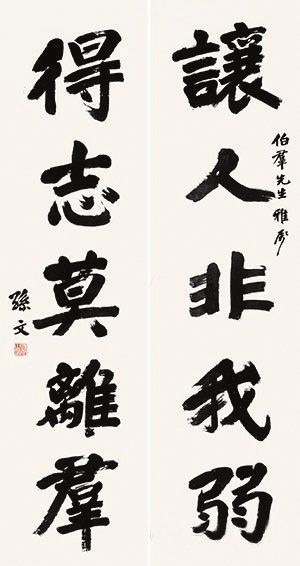 讓人非我弱
伯羣先生雅屬
得志莫離羣
孫文